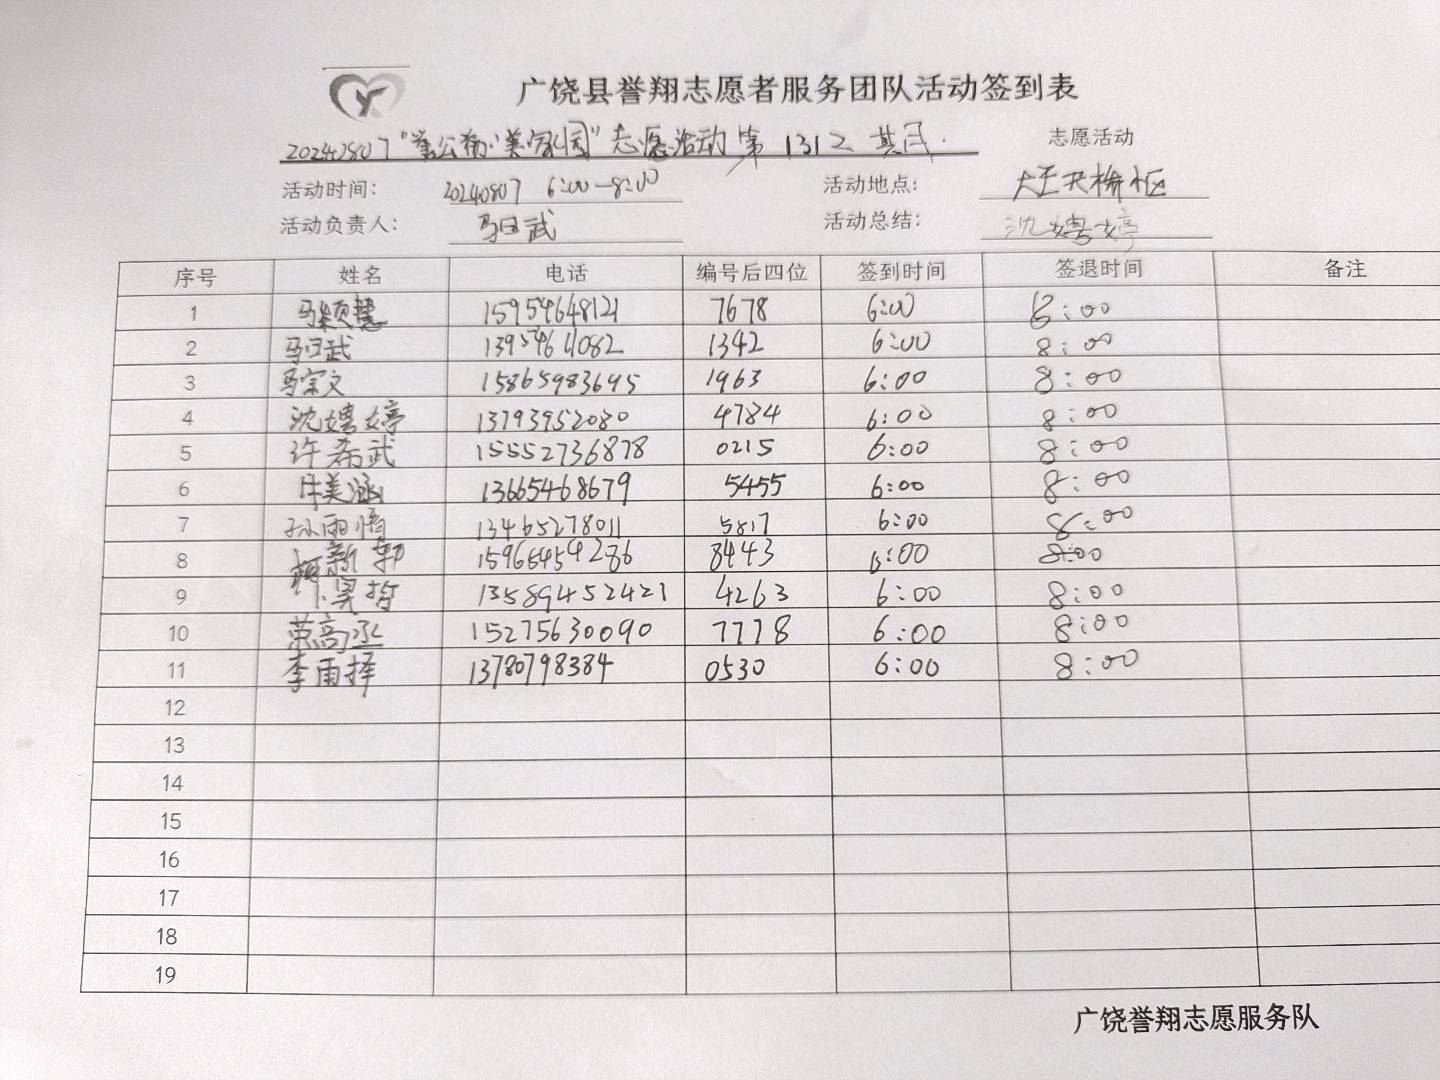 广饶县誉翔志愿者服务团队活动签到表
20240807“誉公益·美家园”志愿活动第1312期 志愿活动
活动时间: 20240807 6:00-8:00 活动地点:
活动负责人: 马曰武 活动总结: 沈娉婷
序号 姓名 电话 编号后四位 签到时间 签退时间 备注
1 马颖慧 15954648121 7678 6:00 8:00
2 马曰武 13954611082 1342 6:00 8:00
3 马宗文 15865983695 1963 6:00 8:00
4 沈娉婷 13793952080 4784 6:00 8:00
5 许希武 15552736878 0215 6:00 8:00
6 牛美涵 13665468679 5455 6:00 8:00
7 孙雨惜 13465278011 5817 6:00 8:00
8 新 15965454286 8443 6:00 8:00
9 昊哲 13589452421 4263 6:00 8:00
10 荣高丞 15275630090 7778 6:00 8:00
11 李雨择 13780798384 0530 6:00 8:00
12
13
14
15
16
17
18
19
广饶誉翔志愿服务队